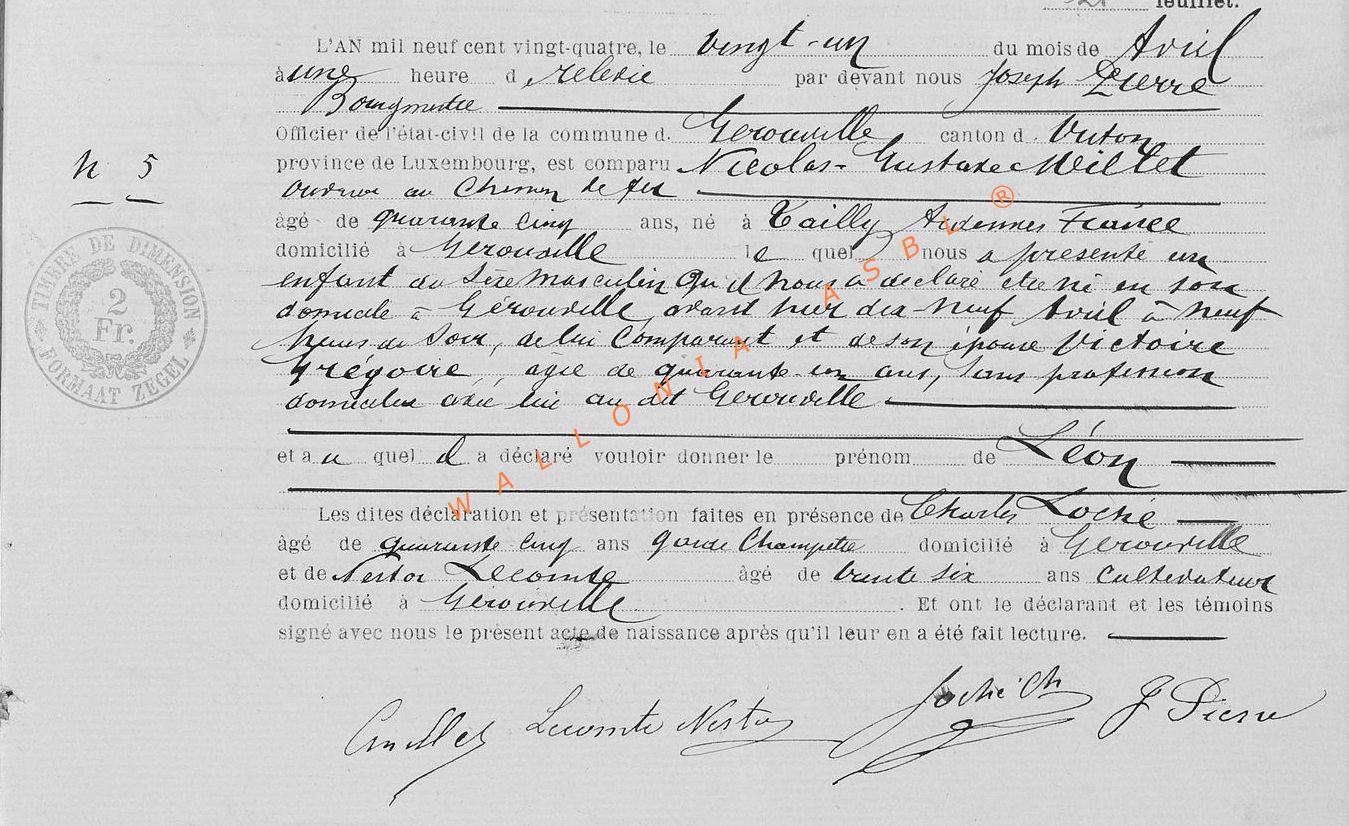 feuillet.
L'AN mil neuf cent vingt-quatre, le vingt-un du mois de Avril
à une heure d relevée par devant nous Joseph Pierre
Bourgmestre
Officier de l'état-civil de la commune d. Gerouville canton d. Virton
province de Luxembourg, est comparu Nicolas-Gustave Millet
ouvrier au Chemin de fer
âgé de quarante cinq ans, né à Tailly Ardennes France
domicilié à Gerouville le quel nous a présenté un
enfant du sexe masculin qu'il nous a déclaré être né en son
domicile à Gérouville, avant hier dix-neuf Avril à neuf
heures du soir, de lui comparant et de son épouse Victoire
Grégoire, agée de quarante un ans, sans profession
domiciliée avec lui au dit Gerouville
et a u quel il a déclaré vouloir donner le prénom de Léon
Les dites déclaration et présentation faites en présence de Charles Loché
âgé de quarante cinq ans garde Champêtre domicilié à Gerouville
et de Nestor Lecomte âgé de trente six ans cultivateur
domicilié à Gerouville. Et ont le déclarant et les témoins
signé avec nous le présent acte de naissance après qu'il leur en a été fait lecture.
N 5
TIMBRE DE DIMENSION
2
Fr.
FORMAAT ZEGEL
WALLONIA ASBL ®
Lecomte Nestor Loché Ch J Pierre